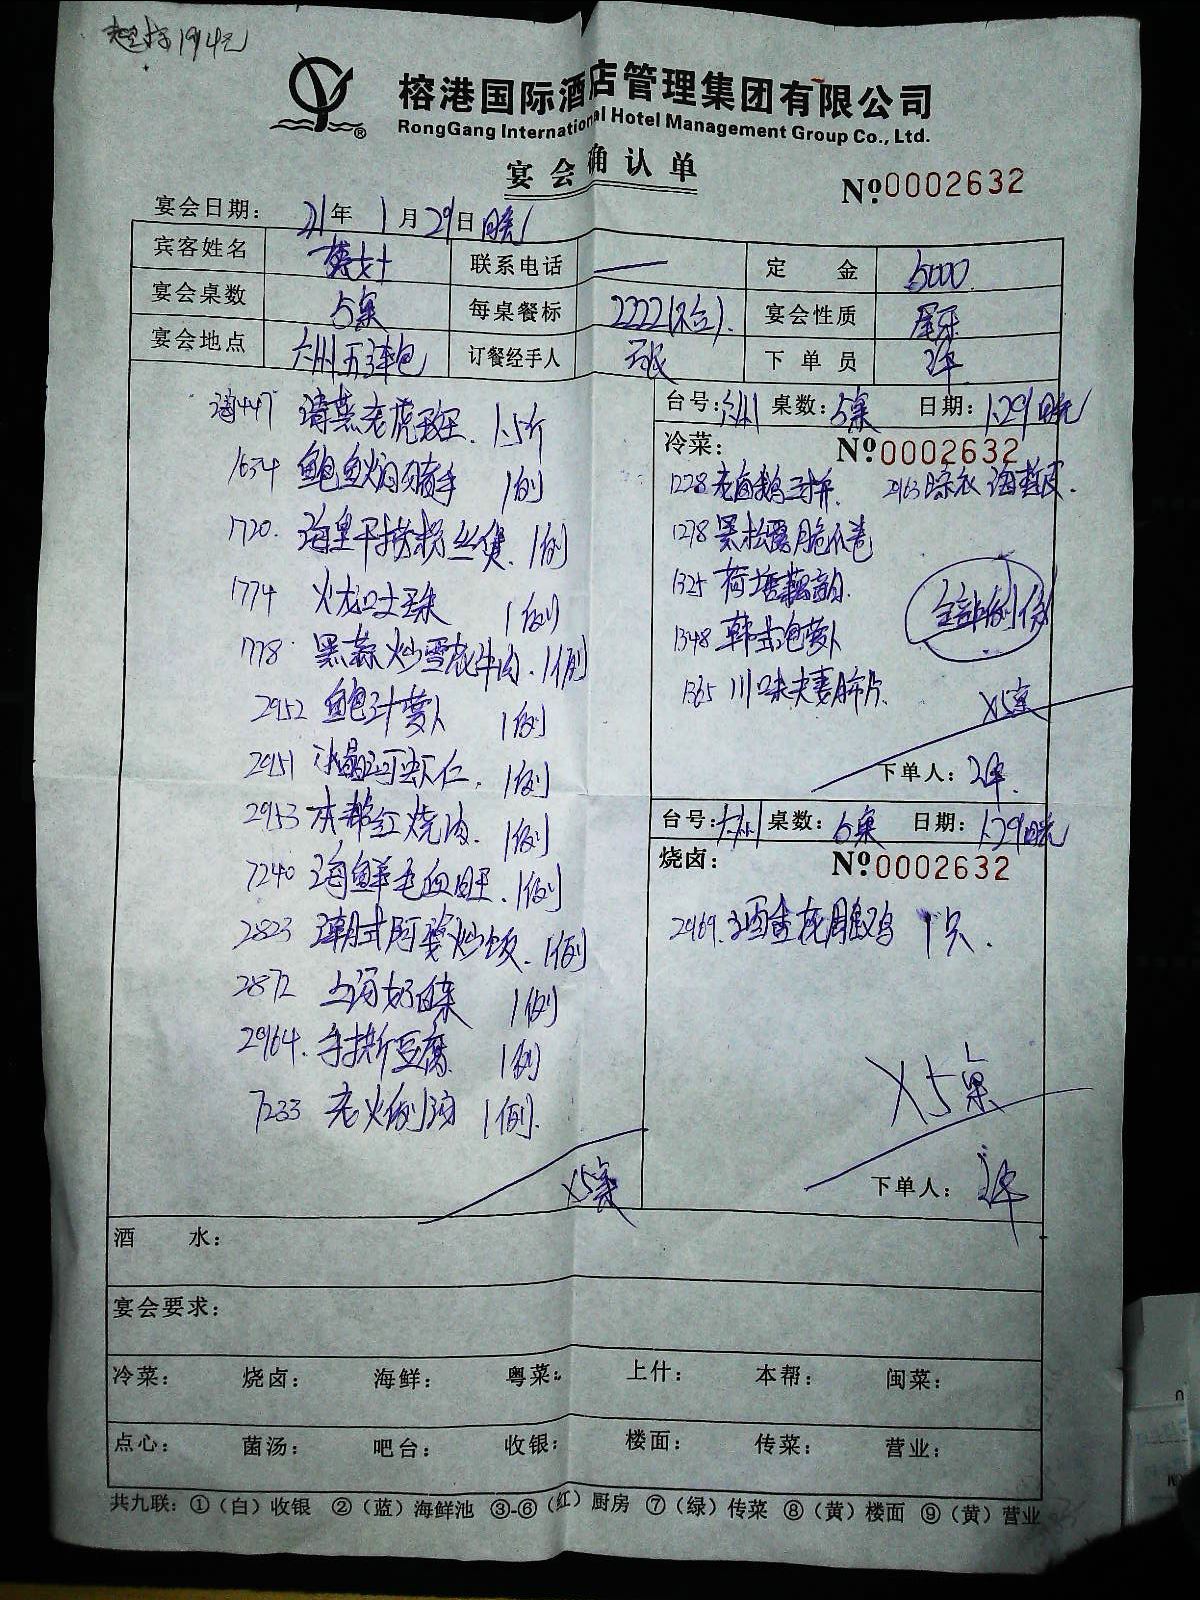 超标194元
榕港国际酒店管理集团有限公司
RongGang International Hotel Management Group Co., Ltd.
宴会确认单
№0002632
宴会日期: 21年1月29日晚
宾客姓名 女士 联系电话 — 定金 5000
宴会桌数 5桌 每桌餐标 2222(不含). 宴会性质 尾牙
宴会地点 六州五连包 订餐经手人 下单员
海447 清蒸老虎斑. 1.5斤
1634 鲍鱼焖 1例
1720. 海皇干捞粉丝煲. 1例
1774 火龙 1例
1778 黑蒜炒雪花牛肉. 1例
2952 鲍汁萝卜 1例
2951 水晶河虾仁. 1例
2953 本帮红烧肉. 1例
7240 海鲜毛血旺. 1例
2823 潮式阿婆炒饭. 1例
2872 上海奶白菜 1例
2964. 手拱斩豆腐 1例
7233 老火例汤 1例.
X5桌
台号:六州 桌数:5桌 日期:1.29晚
冷菜: №0002632
1228 老卤鹅三拼. 2963 晾衣
1278 黑松露脆瓜卷
1325 荷塘藕韵.
1348 韩式泡萝卜
1365 川味夫妻肺片.
全部例份
X5桌
下单人:
台号:六州 桌数:5桌 日期:1.29晚
烧卤: №0002632
2969. 花雕鸡 1只.
X5桌
下单人:
酒水:
宴会要求:
冷菜: 烧卤: 海鲜: 粤菜: 上什: 本帮: 闽菜:
点心: 菌汤: 吧台: 收银: 楼面: 传菜: 营业:
共九联:①(白)收银 ②(蓝)海鲜池 ③-⑥(红)厨房 ⑦(绿)传菜 ⑧(黄)楼面 ⑨(黄)营业